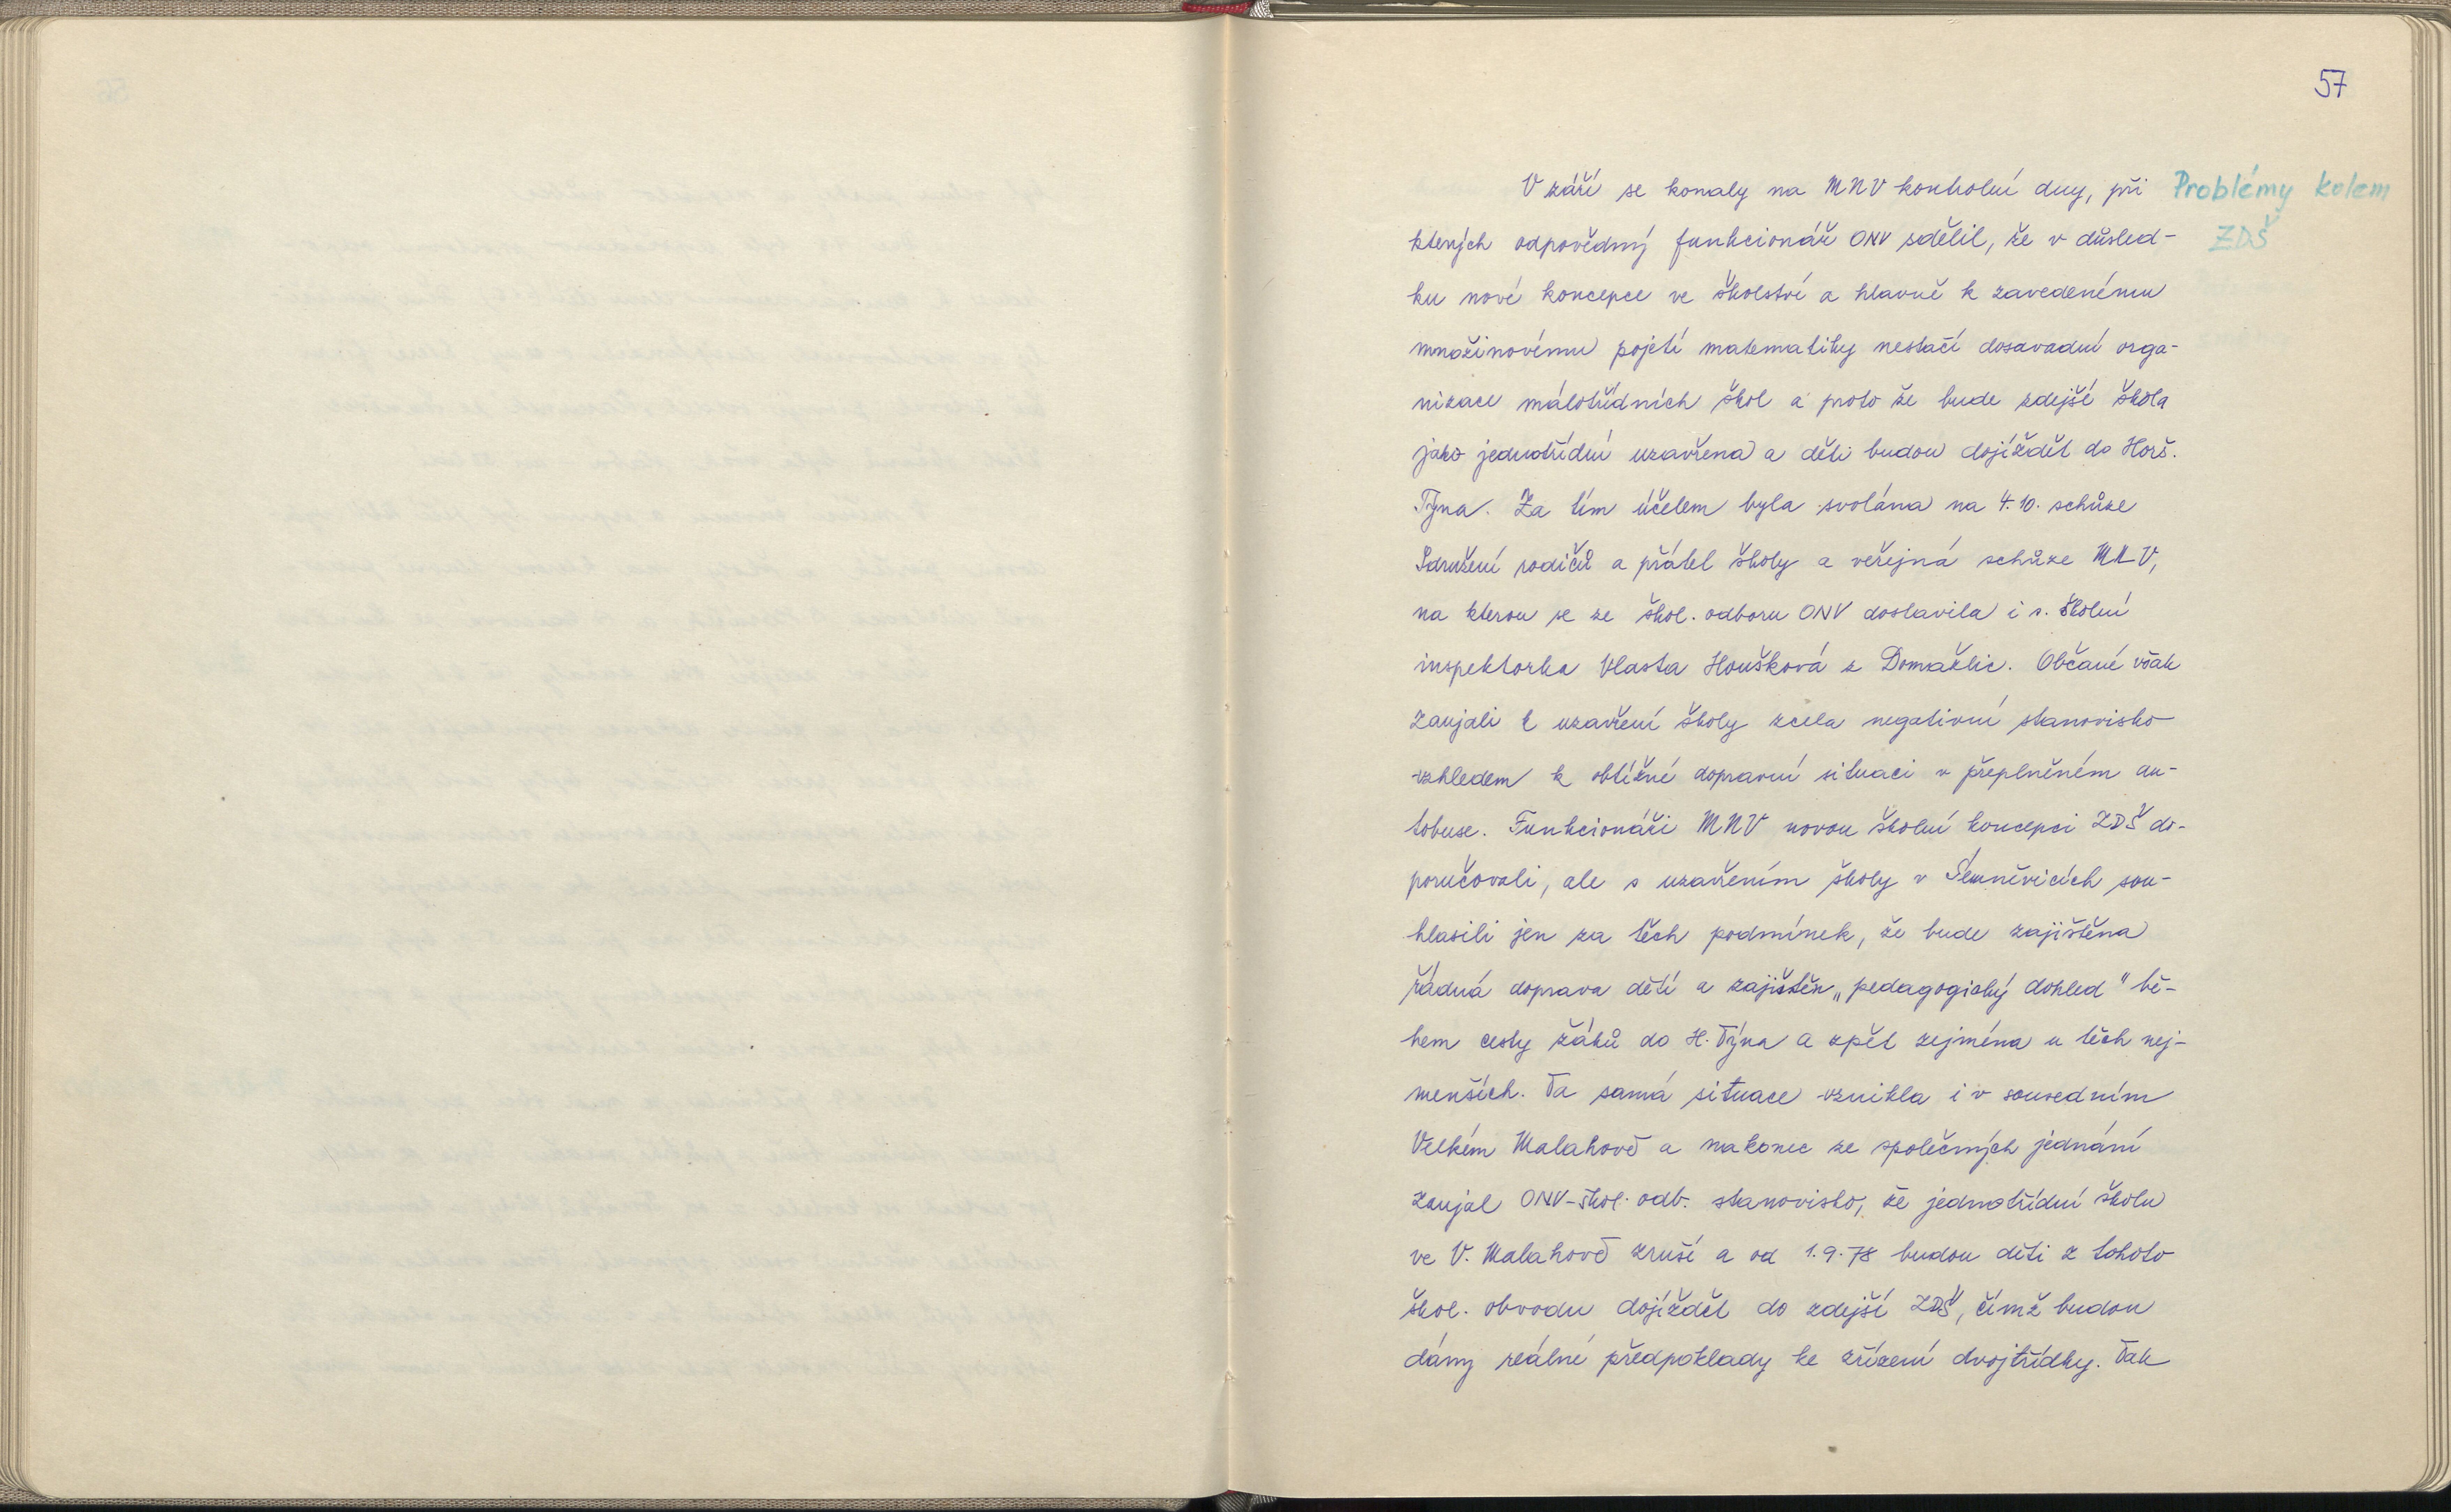 57
Problémy kolem
ZDŠ
V září se konaly na MNV kontrolní dny, při
kterých odpovědný funkcionář ONV sdělil, že v důsled-
ku nové koncepce ve školství a hlavně k zavedenému
množinovému pojetí matematiky nestačí dosavadní orga-
nizace málotřídních škol a proto že bude zdejší škola
jako jednotřídní uzavřena a děti budou dojíždět do Horš.
Týna. Za tím účelem byla svolána na 4.10. schůze
Sdružení rodičů a přátel školy a veřejná schůze MNV,
na kterou se ze škol. odboru ONV dostavila i s. školní
inspektorka Vlasta Houšková z Domažlic. Občané však
zaujali k uzavření školy zcela negativní stanovisko
vzhledem k obtížné dopravní situaci v přeplněném au-
tobuse. Funkcionáři MNV novou školní koncepci ZDŠ do-
poručovali, ale s uzavřením školy v Semněvicích sou-
hlasili jen za těch podmínek, že bude zajištěna
řádná doprava dětí a zajištěn „pedagogický dohled" bě-
hem cesty žáků do H. Týna a zpět zejména u těch nej-
menších. Ta samá situace vznikla i v sousedním
Velkém Malahově a nakonec ze společných jednání
zaujal ONV-škol. odb. stanovisko, že jednotřídní školu
ve V. Malahově zruší a od 1.9.78 budou děti z tohoto
škol. obvodu dojíždět do zdejší ZDŠ, čímž budou
dány reálné předpoklady ke zřízení dvojtřídky. Tak